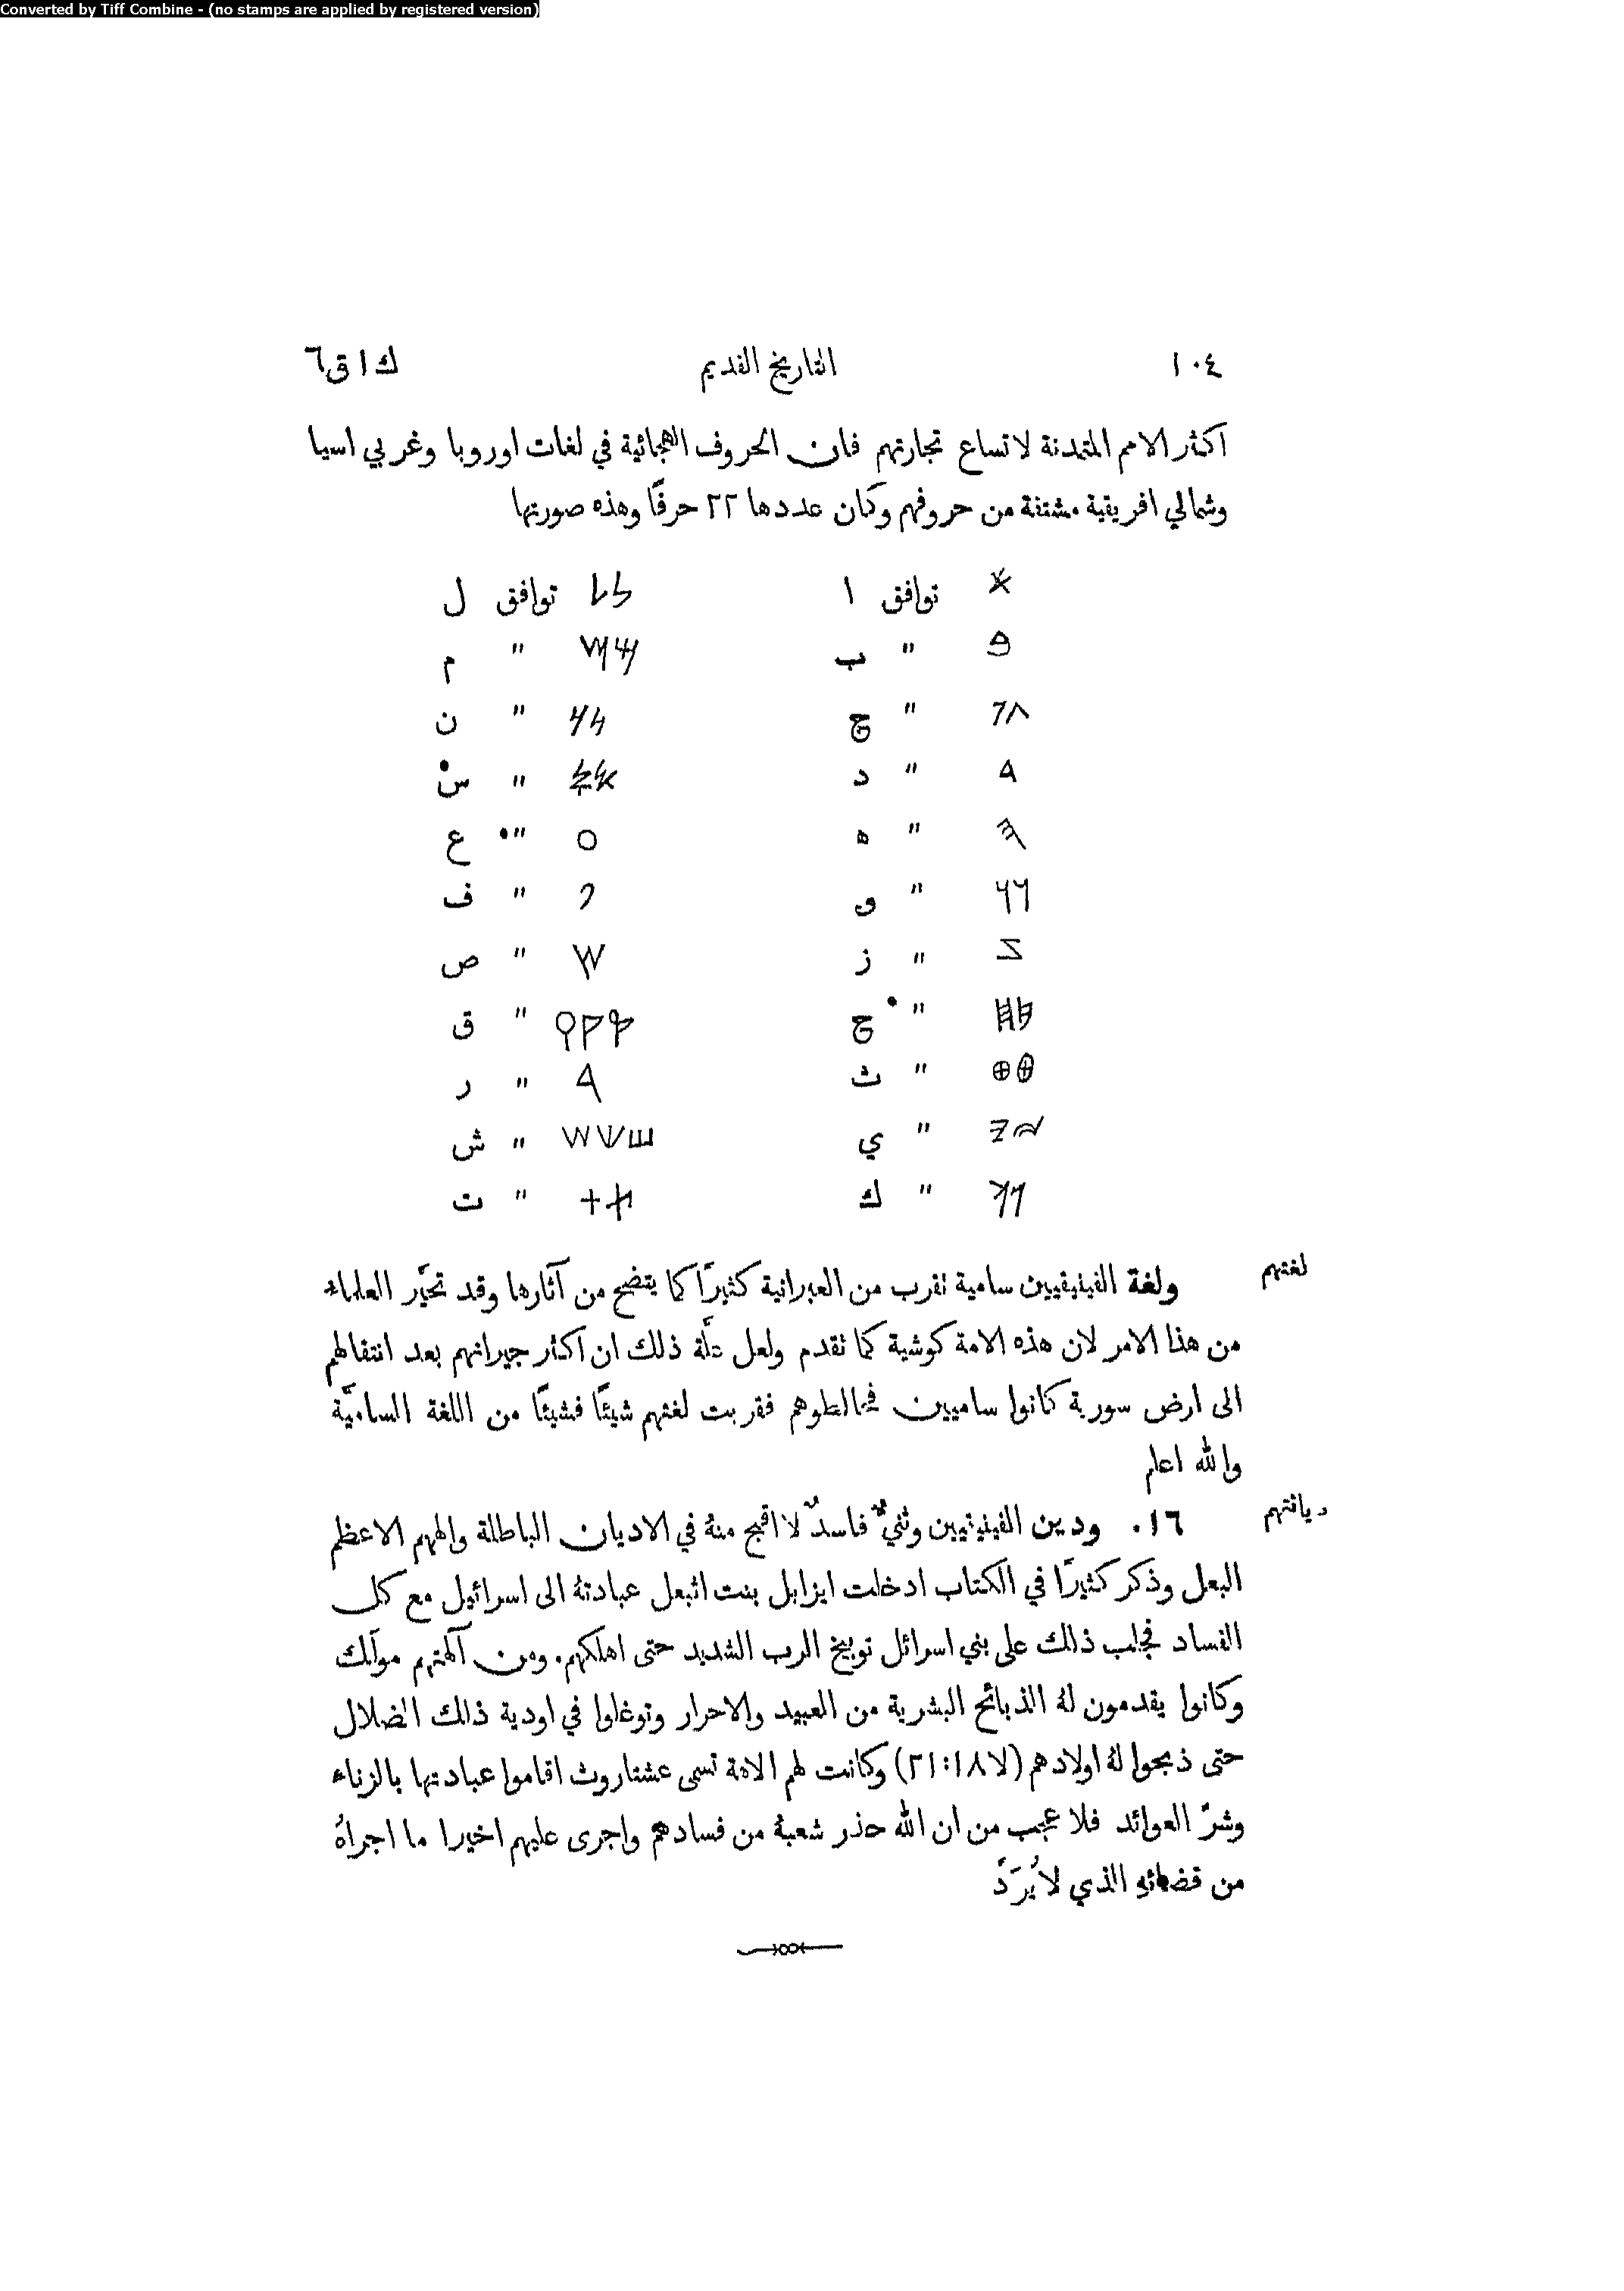 Converted by Tiff Combine - (no stamps are applied by registered version)
١٠٤ التاريخ القديم ك ١ ق ٦
اكثر الامم المتمدنة لاتساع تجارتهم فان الحروف الهجائية في لغات اوروبا وغربي اسيا
وشمالي افريقية مشتقة من حروفهم وكان عددها ٢٢ حرفًا وهذه صورتها
توافق ا توافق ل
" ب " م
" ج " ن
" د " س
" ه " ع
" و " ف
" ز " ص
" ح " ق
" ث " ر
" ي " ش
" ك " ت
لغتهم
ولغة الفينيقيين سامية تقرب من العبرانية كثيرًا كما يتضح من آثارها وقد تحيَّر العلماء
من هذا الامر لان هذه الامة كوشية كما تقدم ولعل علَّة ذلك ان اكثر جيرانهم بعد انتقالهم
الى ارض سورية كانوا ساميين فخالطوهم فقربت لغتهم شيئًا فشيئًا من اللغة الساميَّة
والله اعلم
ديانتهم
١٦. ودين الفينيقيين وثنيٌّ فاسدٌ لا اقبح منهُ في الاديان الباطلة والههم الاعظم
البعل وذكر كثيرًا في الكتاب ادخلت ايزابل بنت اثبعل عبادتهُ الى اسرائيل مع كل
الفساد فجلب ذلك على بني اسرائل توبيخ الرب الشديد حتى اهلكهم. ومن آلهتهم مولك
وكانوا يقدمون لهُ الذبائح البشرية من العبيد والاحرار وتوغلوا في اودية ذلك الضلال
حتى ذبحوا لهُ اولادهم (لا ١٨:٢١) وكانت لهم الاهة تسمى عشتاروث اقاموا عبادتها بالزناء
وشرّ العوائد فلا عجب من ان الله حذر شعبهُ من فسادهم واجرى عليهم اخيرا ما اجراهُ
من قضائهِ الذي لا يُرَدّ